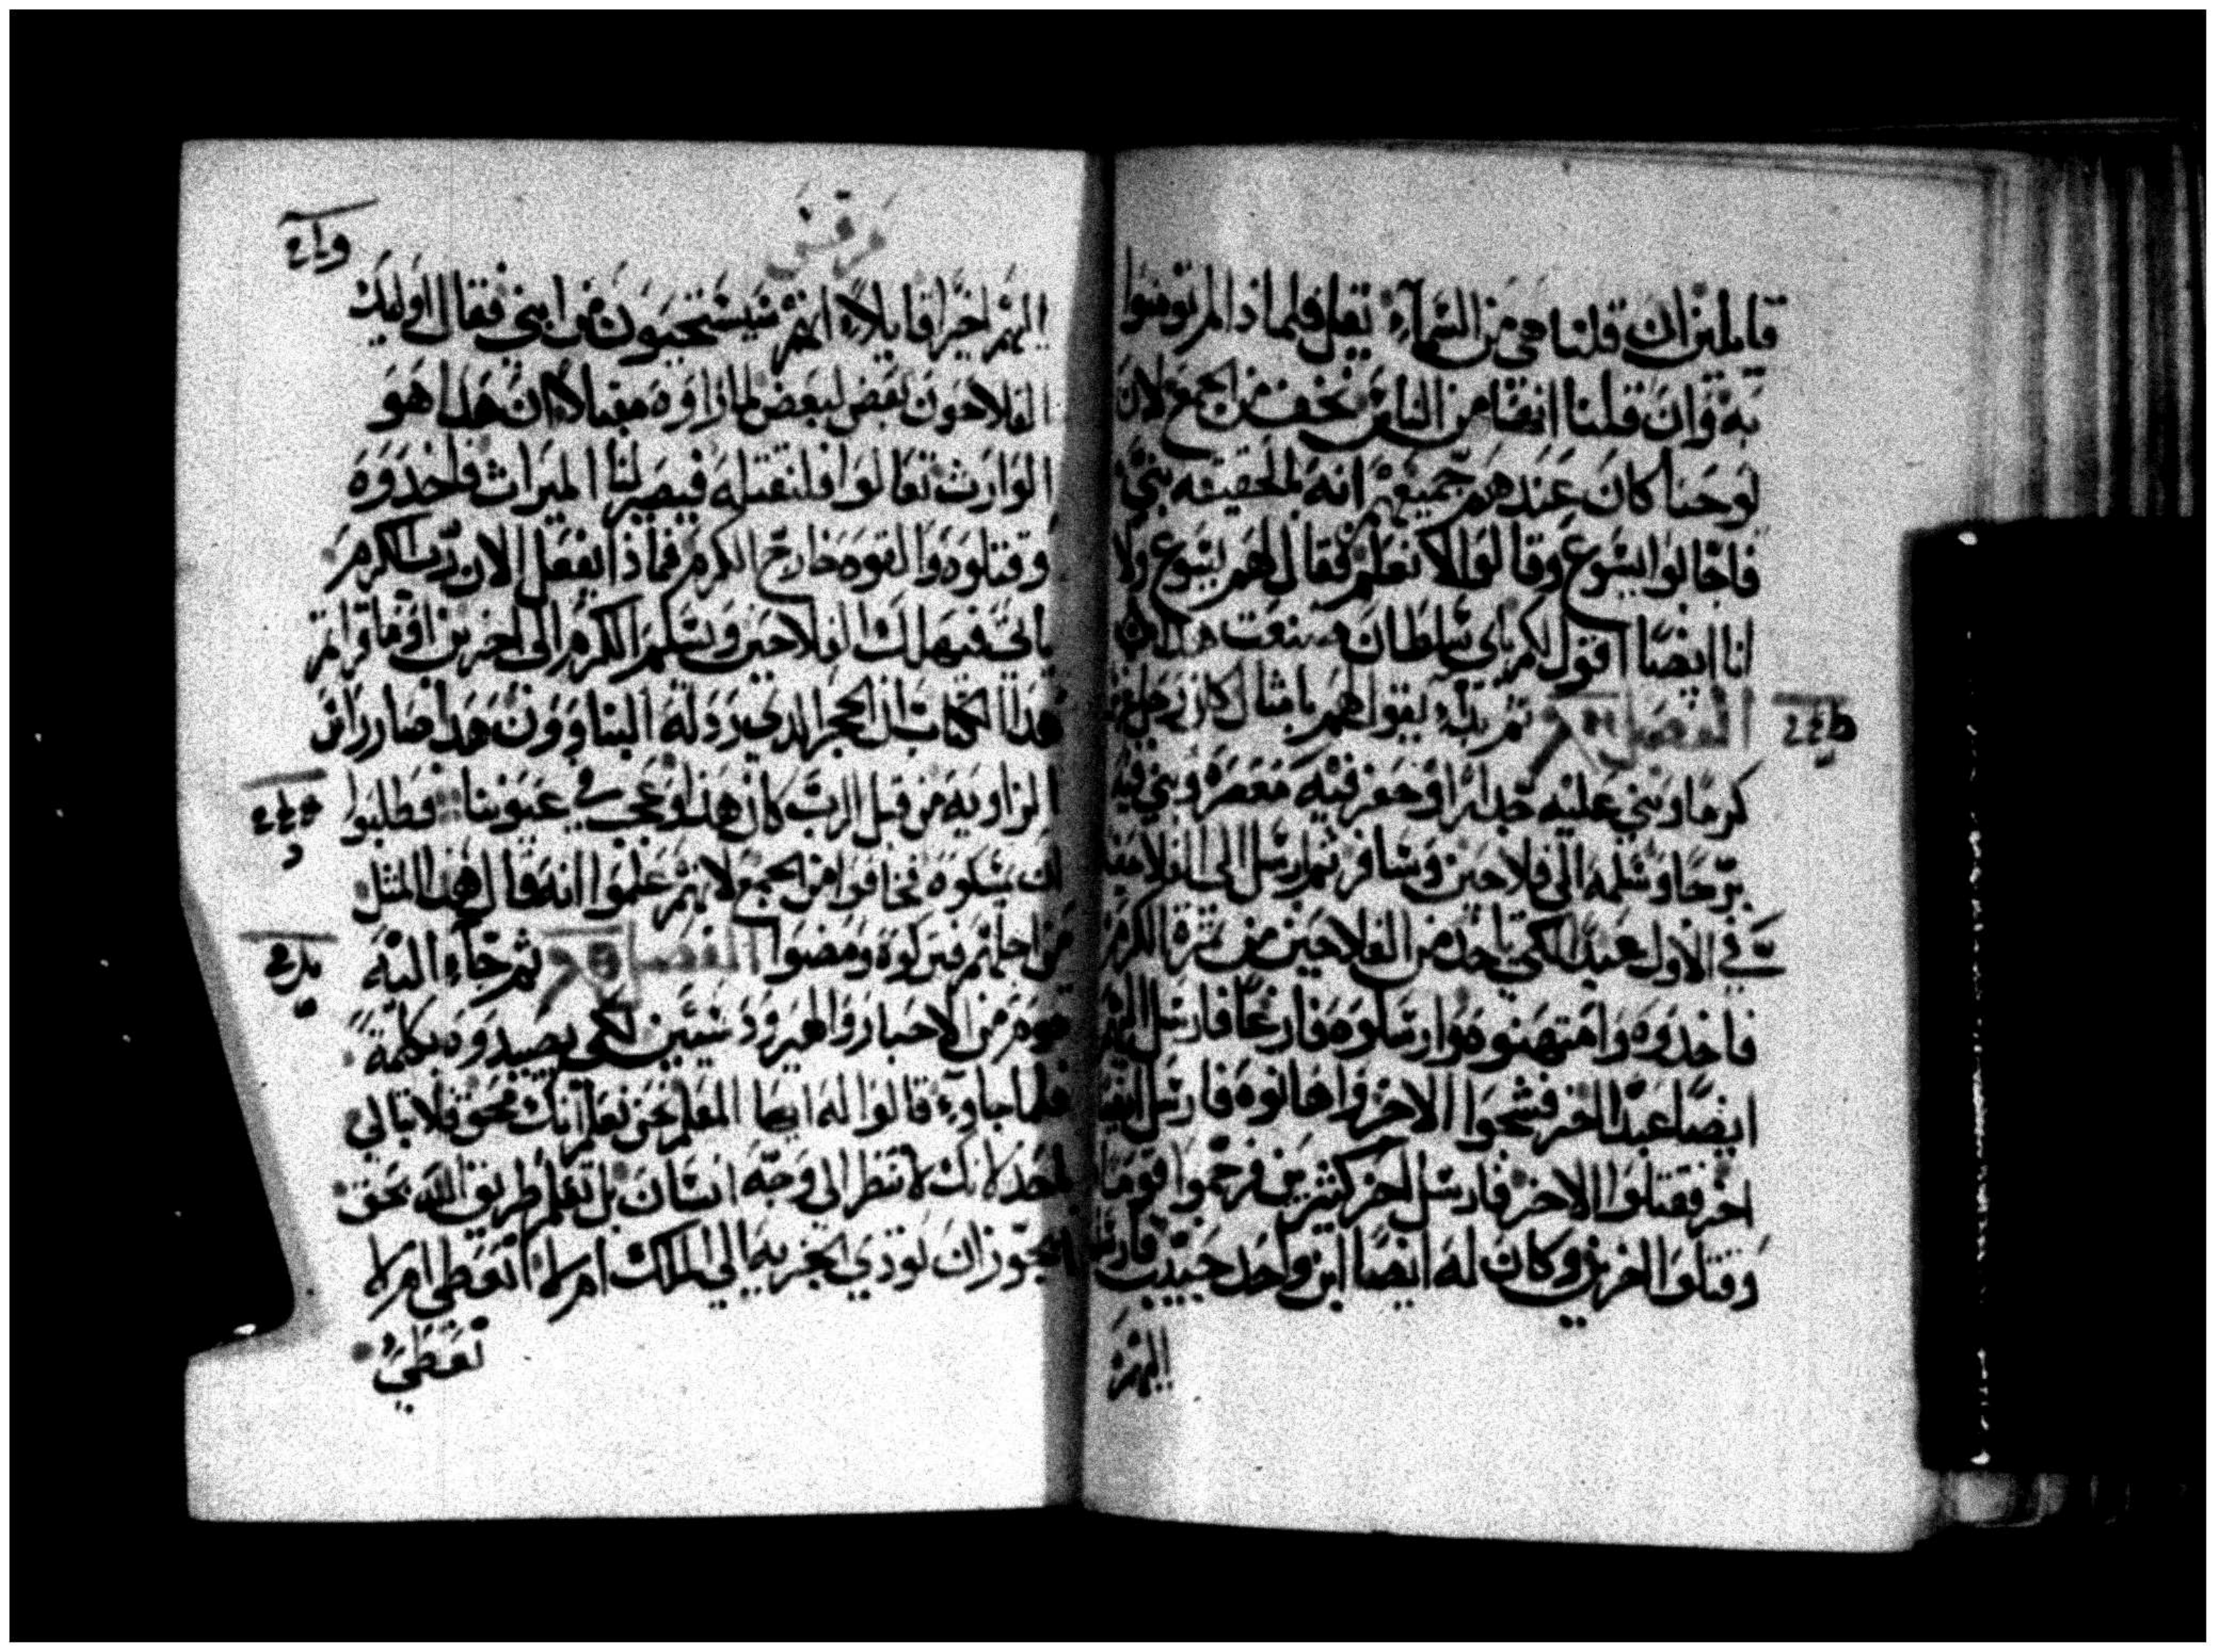 قايلين ان قلنا هي من السمآء يقل فلماذا لم تومنوا
به وان قلنا انها من الناس نخف من الجمع لان
يوحنا كان عند هم جميعهم انه بالحقيقه نبي
فاجابوا ليسوع وقالوا لا نعلم فقال لهم يسوع ولا
انا ايضا اقول لكم باي سلطان صنعت هذا
الفصل ثم بدا يقول لهم بامثال كان رجل
كرما وبني عليه جدارا وحفر فيه معصره وبني فيه
برجا وسلمه الى فلاحين وسافر ثم ارسل الى الفلاحين
في الاول عبدا لكي ياخذ من الفلاحين من ثمرة الكرم
فاخدوه وامتهنوه وارسلوه فارغا فارسل اليهم
ايضا عبدا اخر فشجوا الاخر واهانوه فارسل ايضا
اخر فقتلوا الاخر فارسل اخر كثيرين فرجموا قوما
وقتلوا اخرين وكان له ايضا ابن واحد حبيب فارسله
اليهم
مرقس
اليهم اخيرا قايلا انهم سيستحيون من ابني فقال اوليك
الفلاحون بعض لبعض لما راوه مقبلا ان هدا هو
الوارث تعالوا فلنقتله فيصير لنا الميراث فاخدوه
وقتلوه والقوه خارج الكرم فماذا يفعل الان رب الكرم
ياتي فيهلك الفلاحين ويسلم الكرم الى اخرين اوما قراتم
هدا الكتاب ان الحجر الدي رد له البناوون هدا صار راس
الزاويه من قبل الرب كان هذا وعجب في عيوننا فطلبوا
ان يمسكوه فخافوا من الجمع لانهم علموا انه قال هدا المثل
من اجلهم فتركوه ومضوا الفصل ثم جآء اليه
قوم من الاحبار والهيرودسيين لكي يصيدوه بكلمة
فلما جاوء قالوا له ايها المعلم نحن نعلم انك محق فلا تبالي
باحد لانك لا تنظر الى وجه انسان بل تعلم طريق الله بحق
ايجوز ان نودي الجزيه الى الملك ام لا انعطي ام لا
نعطي